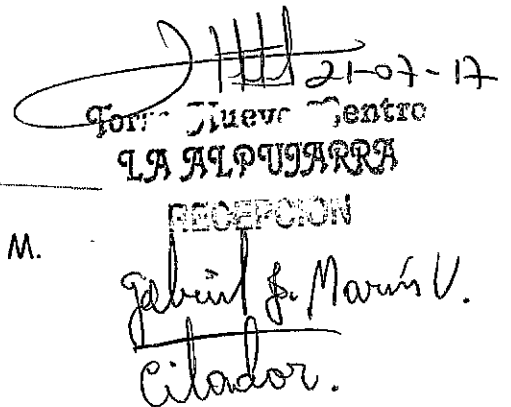 21-07-17
Torre Nuevo Centro
LA ALPUJARRA
RECEPCION
M.
Gabriel J. Marín V.
Citador.